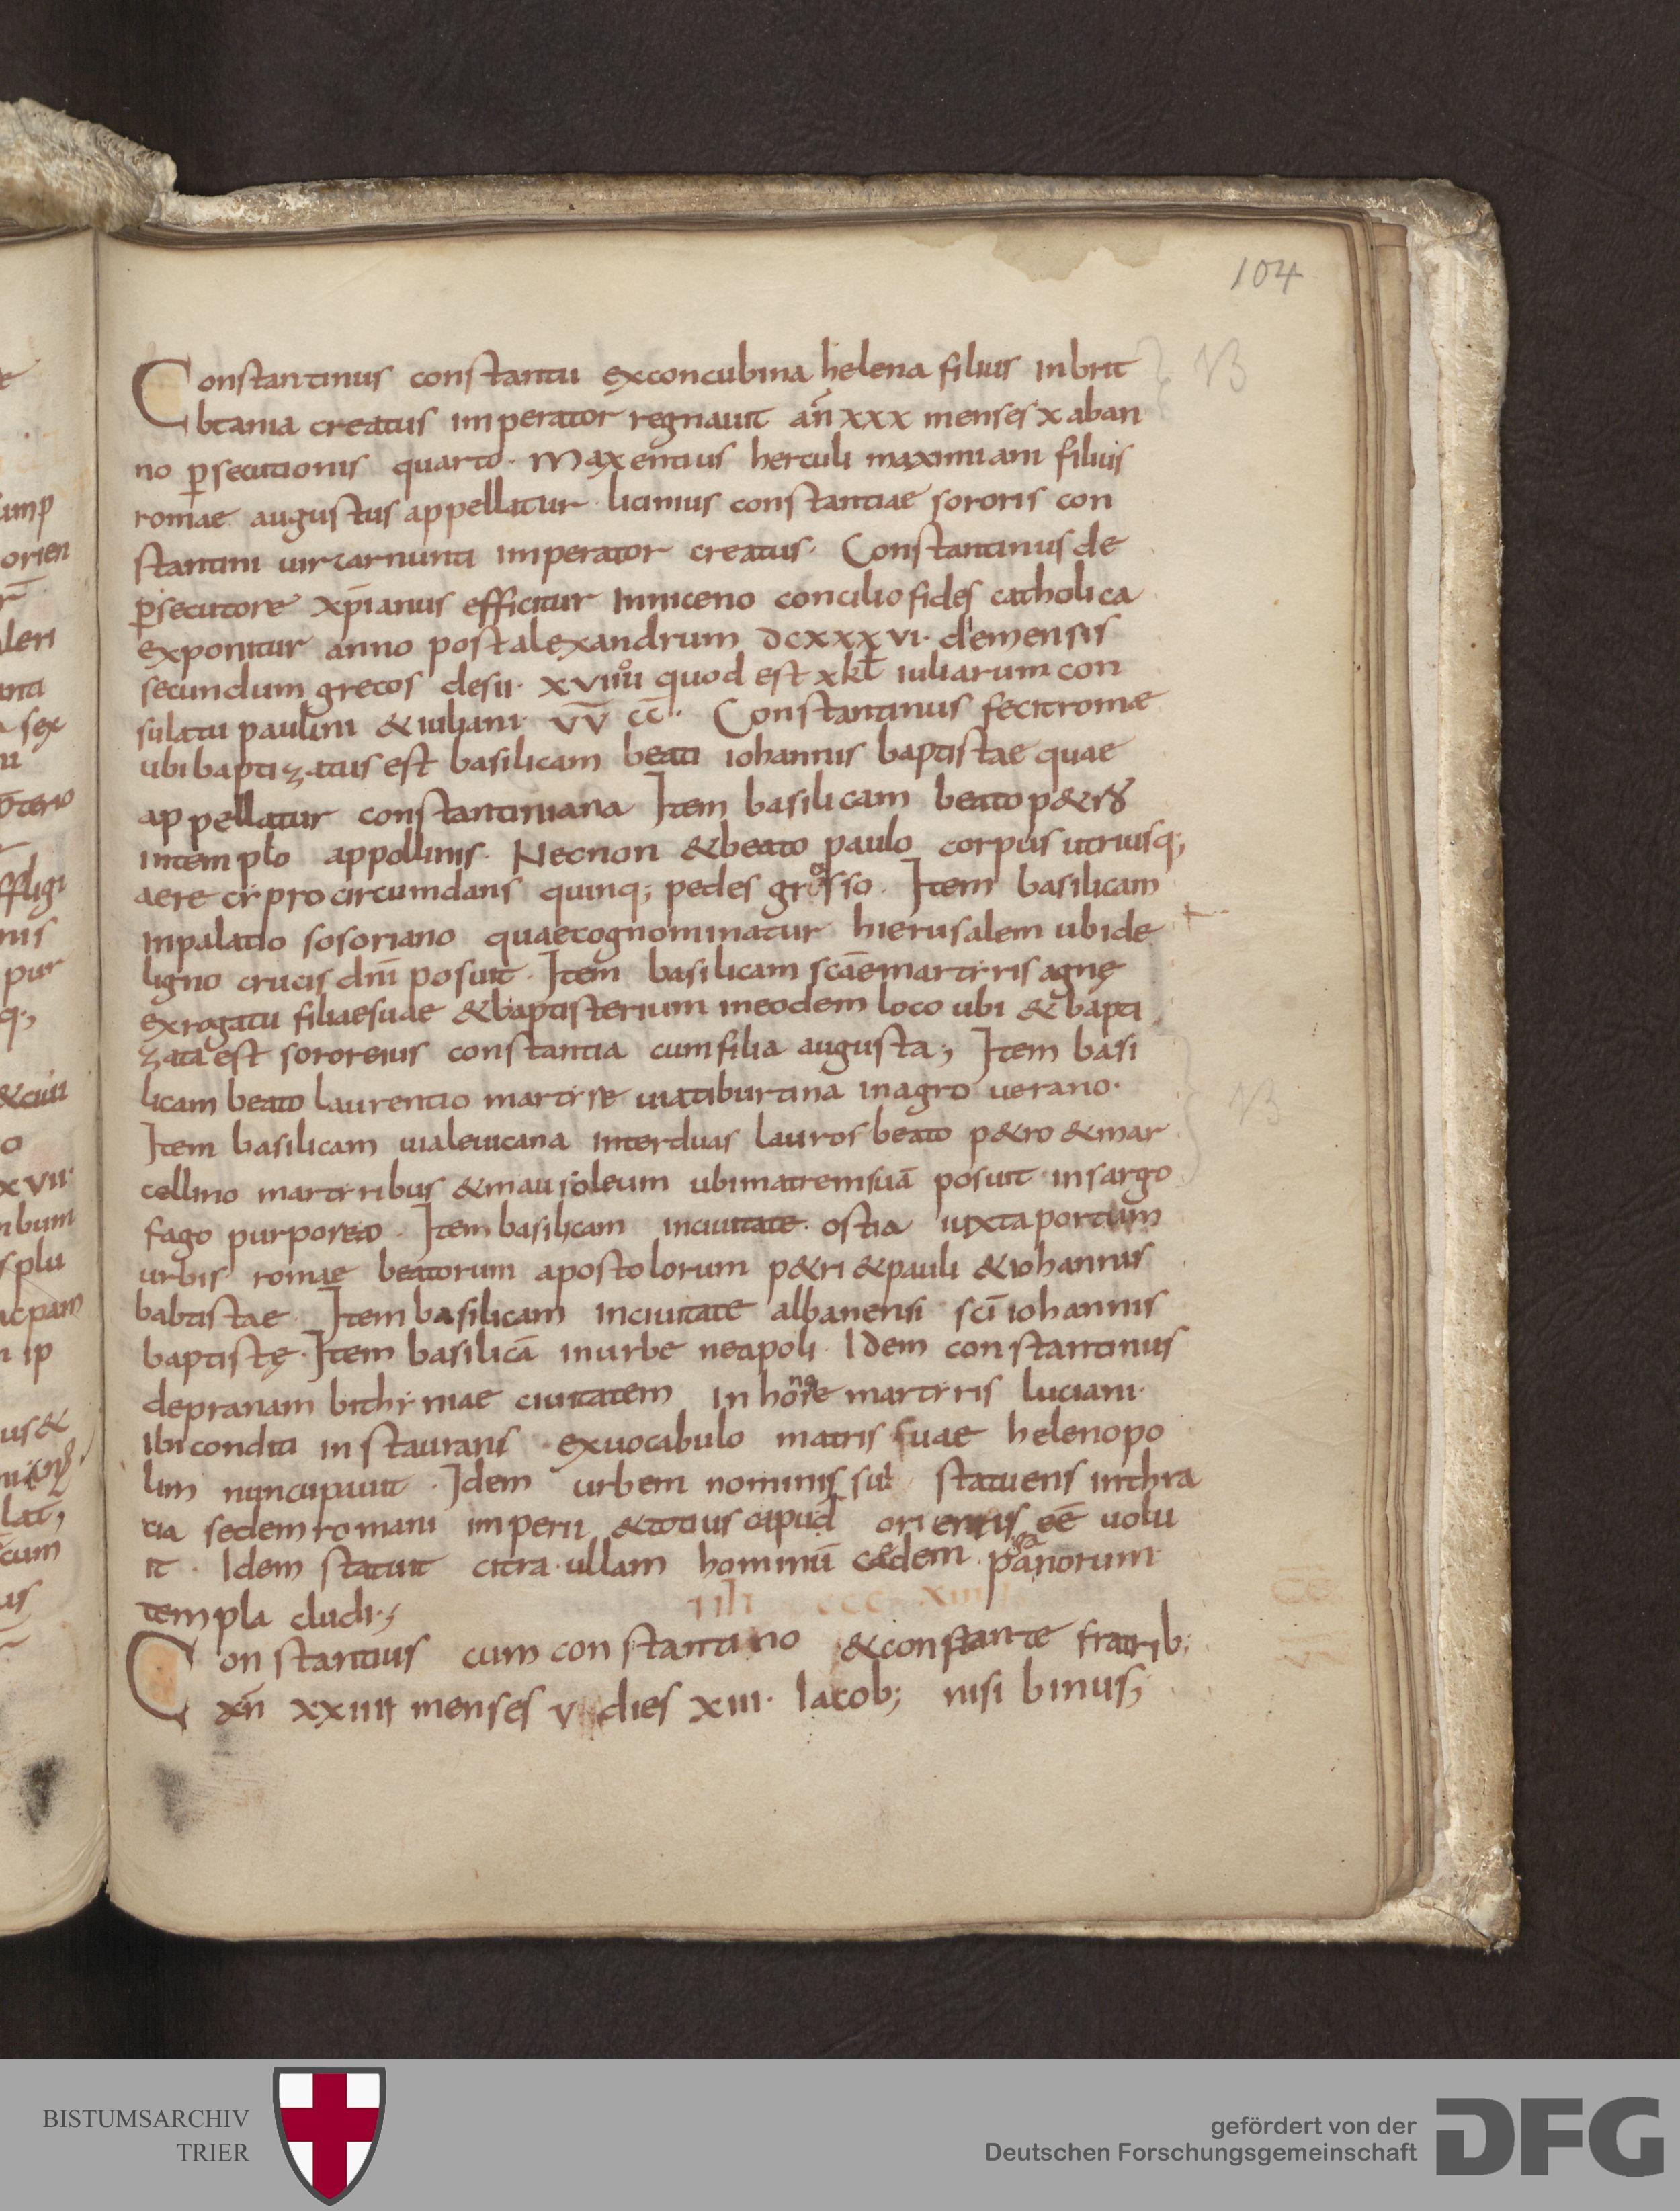 104
Constantinus constantii exconcubina helena filius inbrit
btania creatus imperator regnauit an̄ xxx menses x aban
no p̱secutionis quarto · Maxentius herculi maximiani filius
romae augustus appellatur · licinius constantiae sororis con
stantini uir carnunti imperator creatus · Constantinus de
p̱secutore xp̄ianus efficitur Inniceno concilio fides catholica
exponitur anno postalexandrum dcxxxvi · demensis
secundum grecos desii · xviiii quod est xkl̄ iuliarum con
sulatu paulini &iuliani · v̄v̄ c̄c̄ · Constantinus fecitromae
ubibaptizatus est basilicam beati iohannis baptistae quae
appellatur constantiniana Item basilicam beato p&ro
intemplo appollinis · Necnon &beato paulo corpus utriusq;
aere cipro circumdans quinq; pedes grosso · Item basilicam
inpalatio sosoriano quaecognominatur hierusalem ubide
ligno crucis dn̄i posuit · Item basilicam scāemartiris agnę
exrogatu filiaesuae &baptisterium ineodem loco ubi &bapti
zata est sororeius constantia cumfilia augusta; Item basi
licam beato laurentio martire uiatiburtina inagro uerano ·
Item basilicam uialeuicana interduas lauros beato p&ro &mar
cellino martiribus &mausoleum ubimatremsuā posuit insargo
fago purporeo · Item basilicam inciuitate · ostia iuxtaportum
urbis romae beatorum apostolorum p&ri &pauli &iohannis
babtistae · Item basilicam inciuitate albanensi sc̄i iohannis
baptistę · Item basilicā inurbe neapoli · Idem constantinus
depranam bithiniae ciuitatem in honore martiris luciani ·
ibi condita instaurans · exuocabulo matris suae helenopo
lim nuncupuit · Idem urbem nominis sui statuens inthra
cia sedemromani imperii &totius capud orientis eē uolu
it · Idem statuit citra ullam hominū cędem paganorum
templa cludi ·;
Constantius cum constantino &constante fratrib;
xn̄ xxiiii menses v dies xiii · Iacob; nisibinus;
BISTUMSARCHIV
TRIER
gefördert von der
Deutschen Forschungsgemeinschaft
DFG